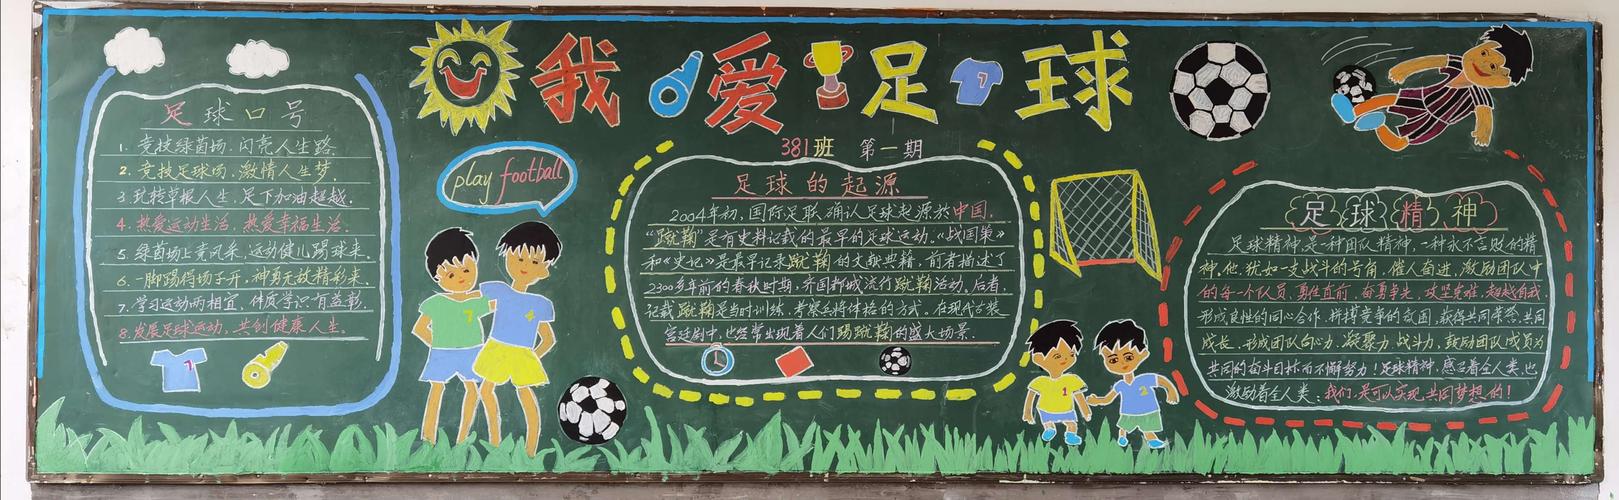 我爱足球
381班 第一期
足球口号
1. 竞技绿茵场，闪亮人生路
2. 竞技足球场，激情人生梦。
3. 玩转草根人生，足下加油超越。
4. 热爱运动生活，热爱幸福生活。
5. 绿茵场上竞风采，运动健儿踢球来。
6. 一脚踢得场子开，神勇无敌精彩来。
7. 学习运动两相宜，体质学识有益彰。
8. 发展足球运动，共创健康人生。
play football
足球的起源
2004年初，国际足联确认足球起源於中国，
“蹴鞠”是有史料记载的最早的足球运动。《战国策》
和《史记》是最早记录蹴鞠的文献典籍，前者描述了
2300多年前的春秋时期，齐国都城流行蹴鞠活动，后者
记载蹴鞠是当时训练、考察兵将体格的方式。在现代古装
宫廷剧中，也经常出现着人们踢蹴鞠的盛大场景。
足球精神
足球精神，是一种团队精神，一种永不言败的精
神，他，犹如一支战斗的号角，催人奋进，激励团队中
的每一个队员，勇往直前，奋勇争先，攻坚克难，超越自我，
形成良性的同心合作，拼搏竞争的氛围，获得共同荣誉、共同
成长，形成团队向心力、凝聚力、战斗力，鼓励团队成员为
共同的奋斗目标而不懈努力！足球精神，感召着全人类，也
激励着全人类：我们是可以实现共同梦想的！
7
7
7
4
1
2